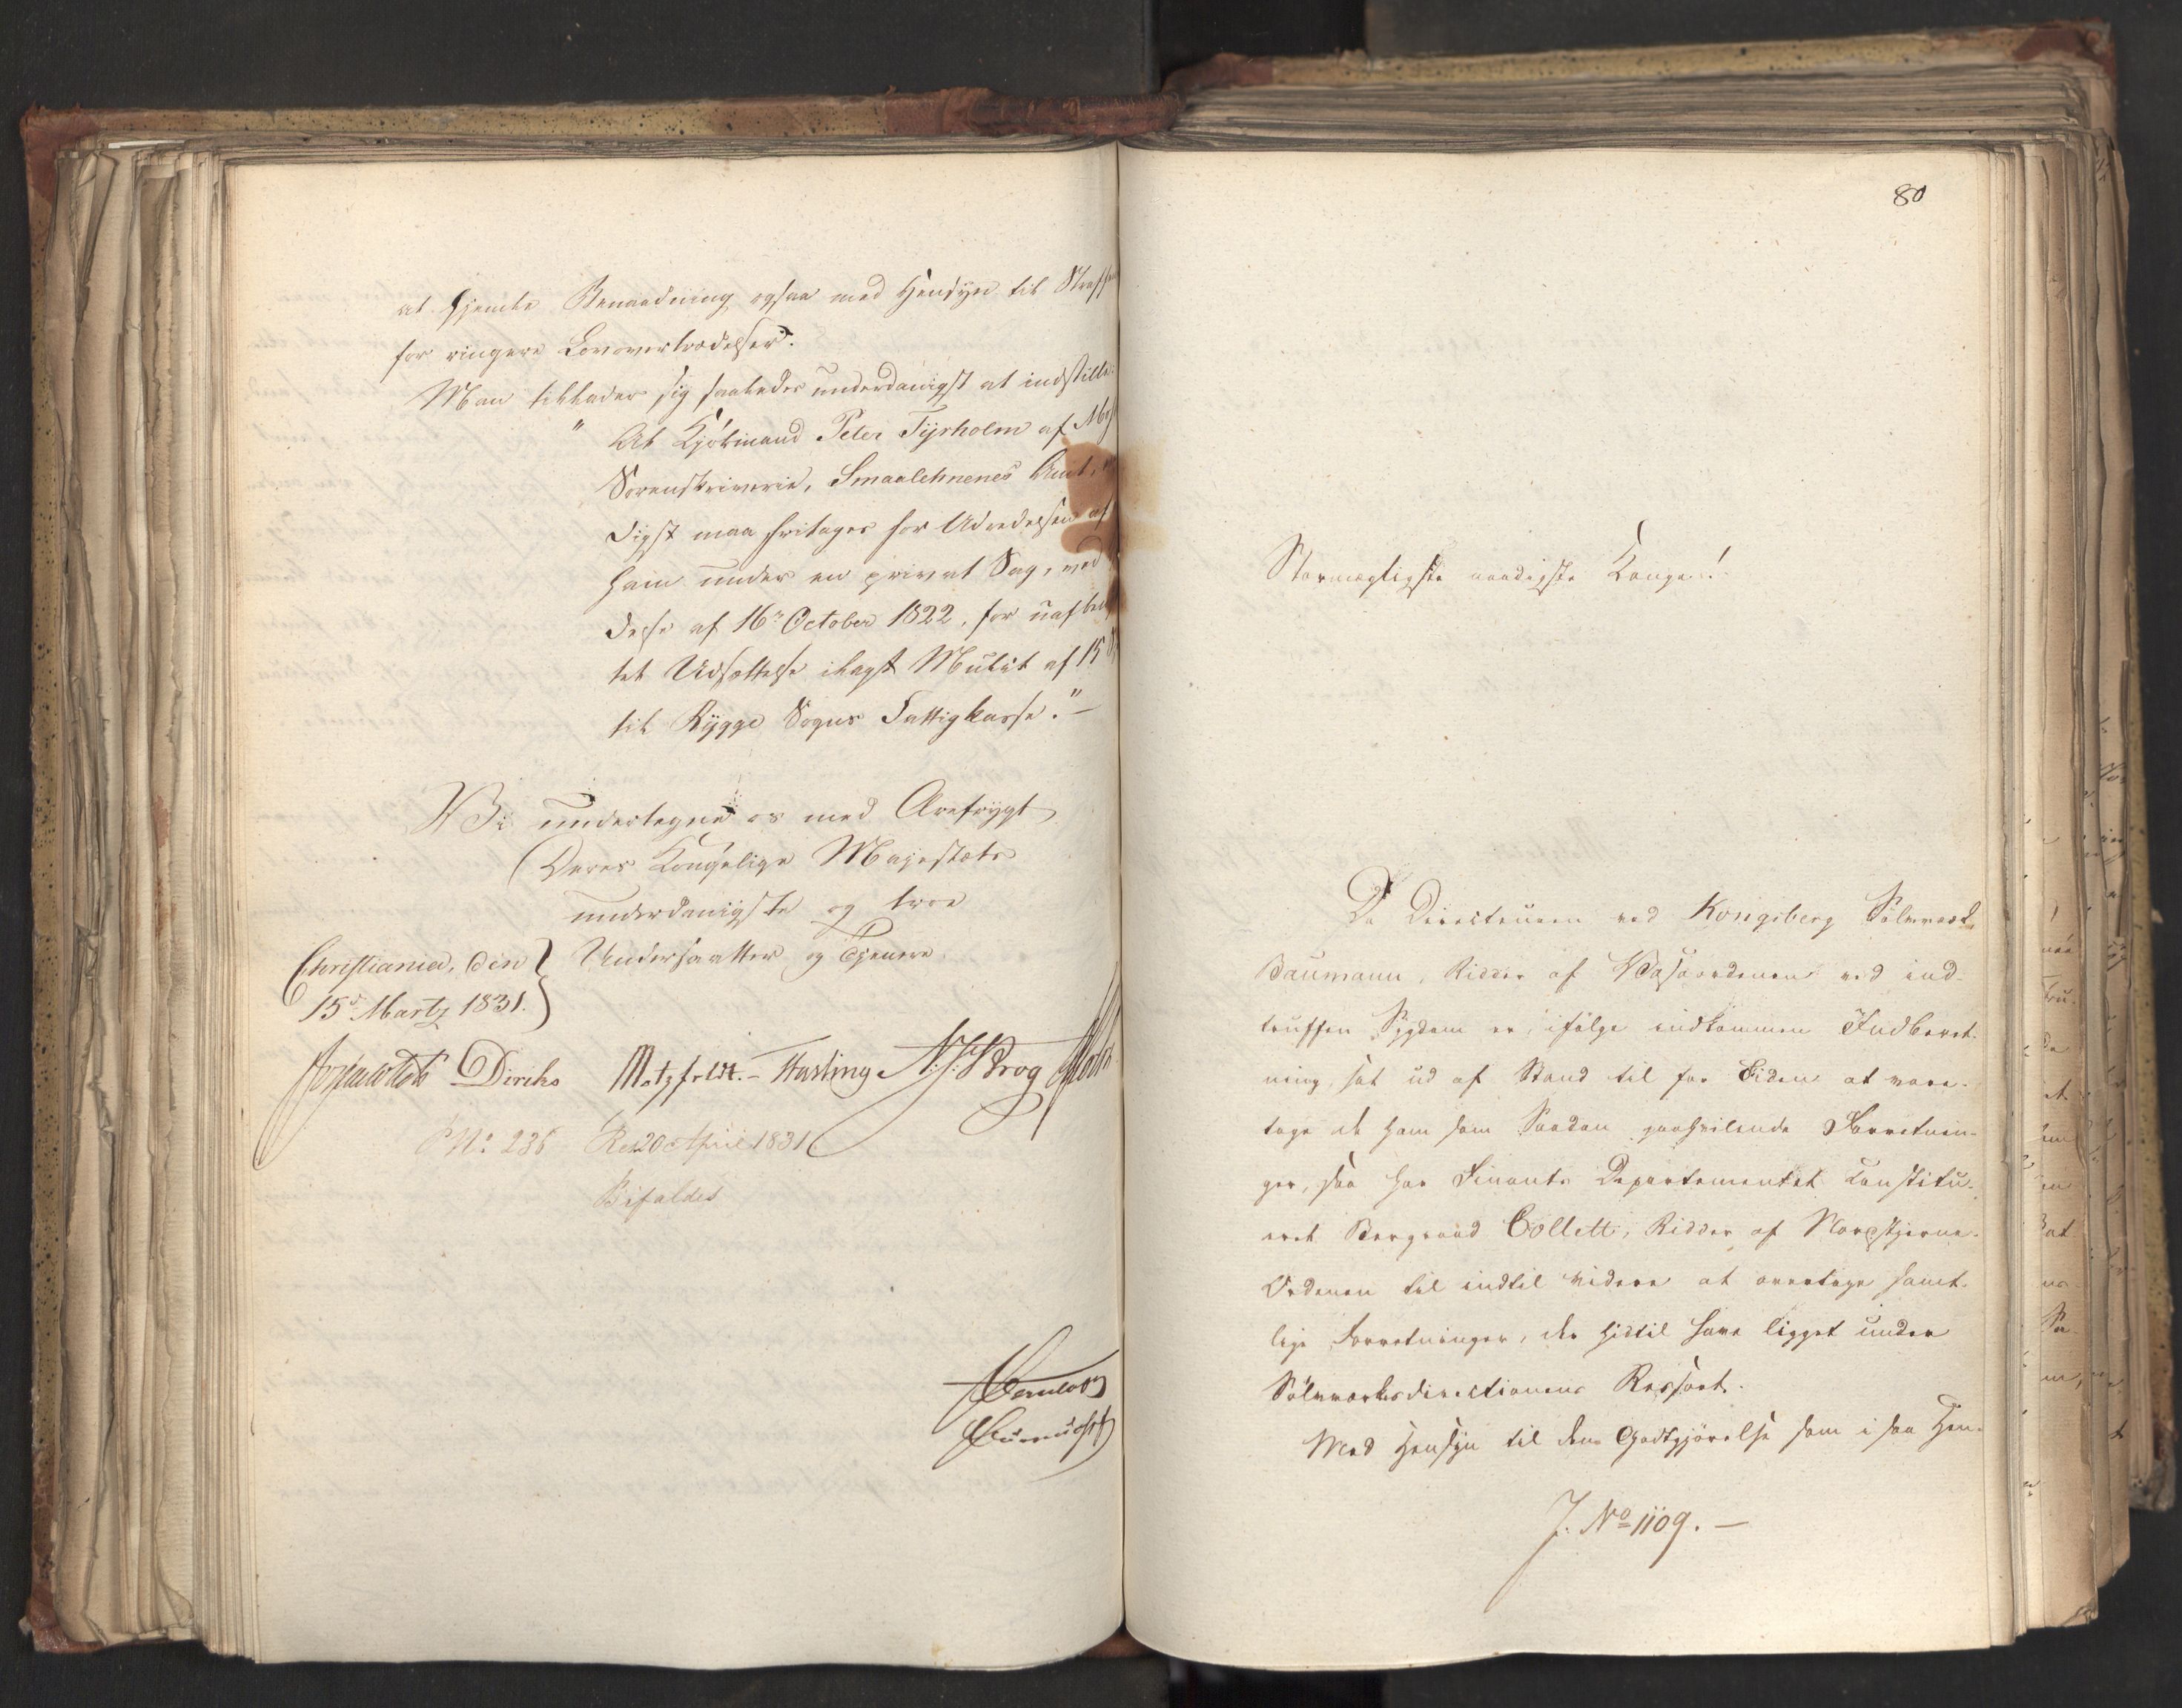 at skjenke Benaadning ogsaa med Hensyn til
for ringere Lovovertrædelser.
Man tillader sig saaledes underdanigst at indstille:
" At Peter Tyrholm af
Sorenskriverie, Smaalehnenes Amt,
digst maa fritages for Udredelsen af
ham under en privat Sag, ved
delse af 16de October 1822, for
tet Udsættelse ilagt Mulct af 15
til Rygge Sogns Fattigkasse." –
Vi undertegne os med Ærefrygt
Deres Kongelige Majestæts
underdanigste og troe
Undersaatter og Tjenere.
Christiania, den
15de Martz 1831.
Diriks Motzfeldt. – Fasting
No: 235 Res 20 April 1831
Bifaldes
80
Stormægtigste naadigste Konge!
Da Directeuren ved Kongsberg Sølvværk
Baumann, Ridder af Vasaordenen ved ind-
truffen Sygdom er, ifølge indkommen Indberet-
ning, sat ud af Stand til for Tiden at vare-
tage de ham som Saadan paahvilende Forretnin-
ger, saa har Finants Departementet constitu-
eret Bergraad Collett, Ridder af Nordstjerne-
Ordenen til indtil videre at overtage samt-
lige Forretninger, der hidtil have ligget under
Sølvværksdirectionens Ressort.
Med Hensyn til den Godtgjørelse som i saa Hen-
J. No 1109. –